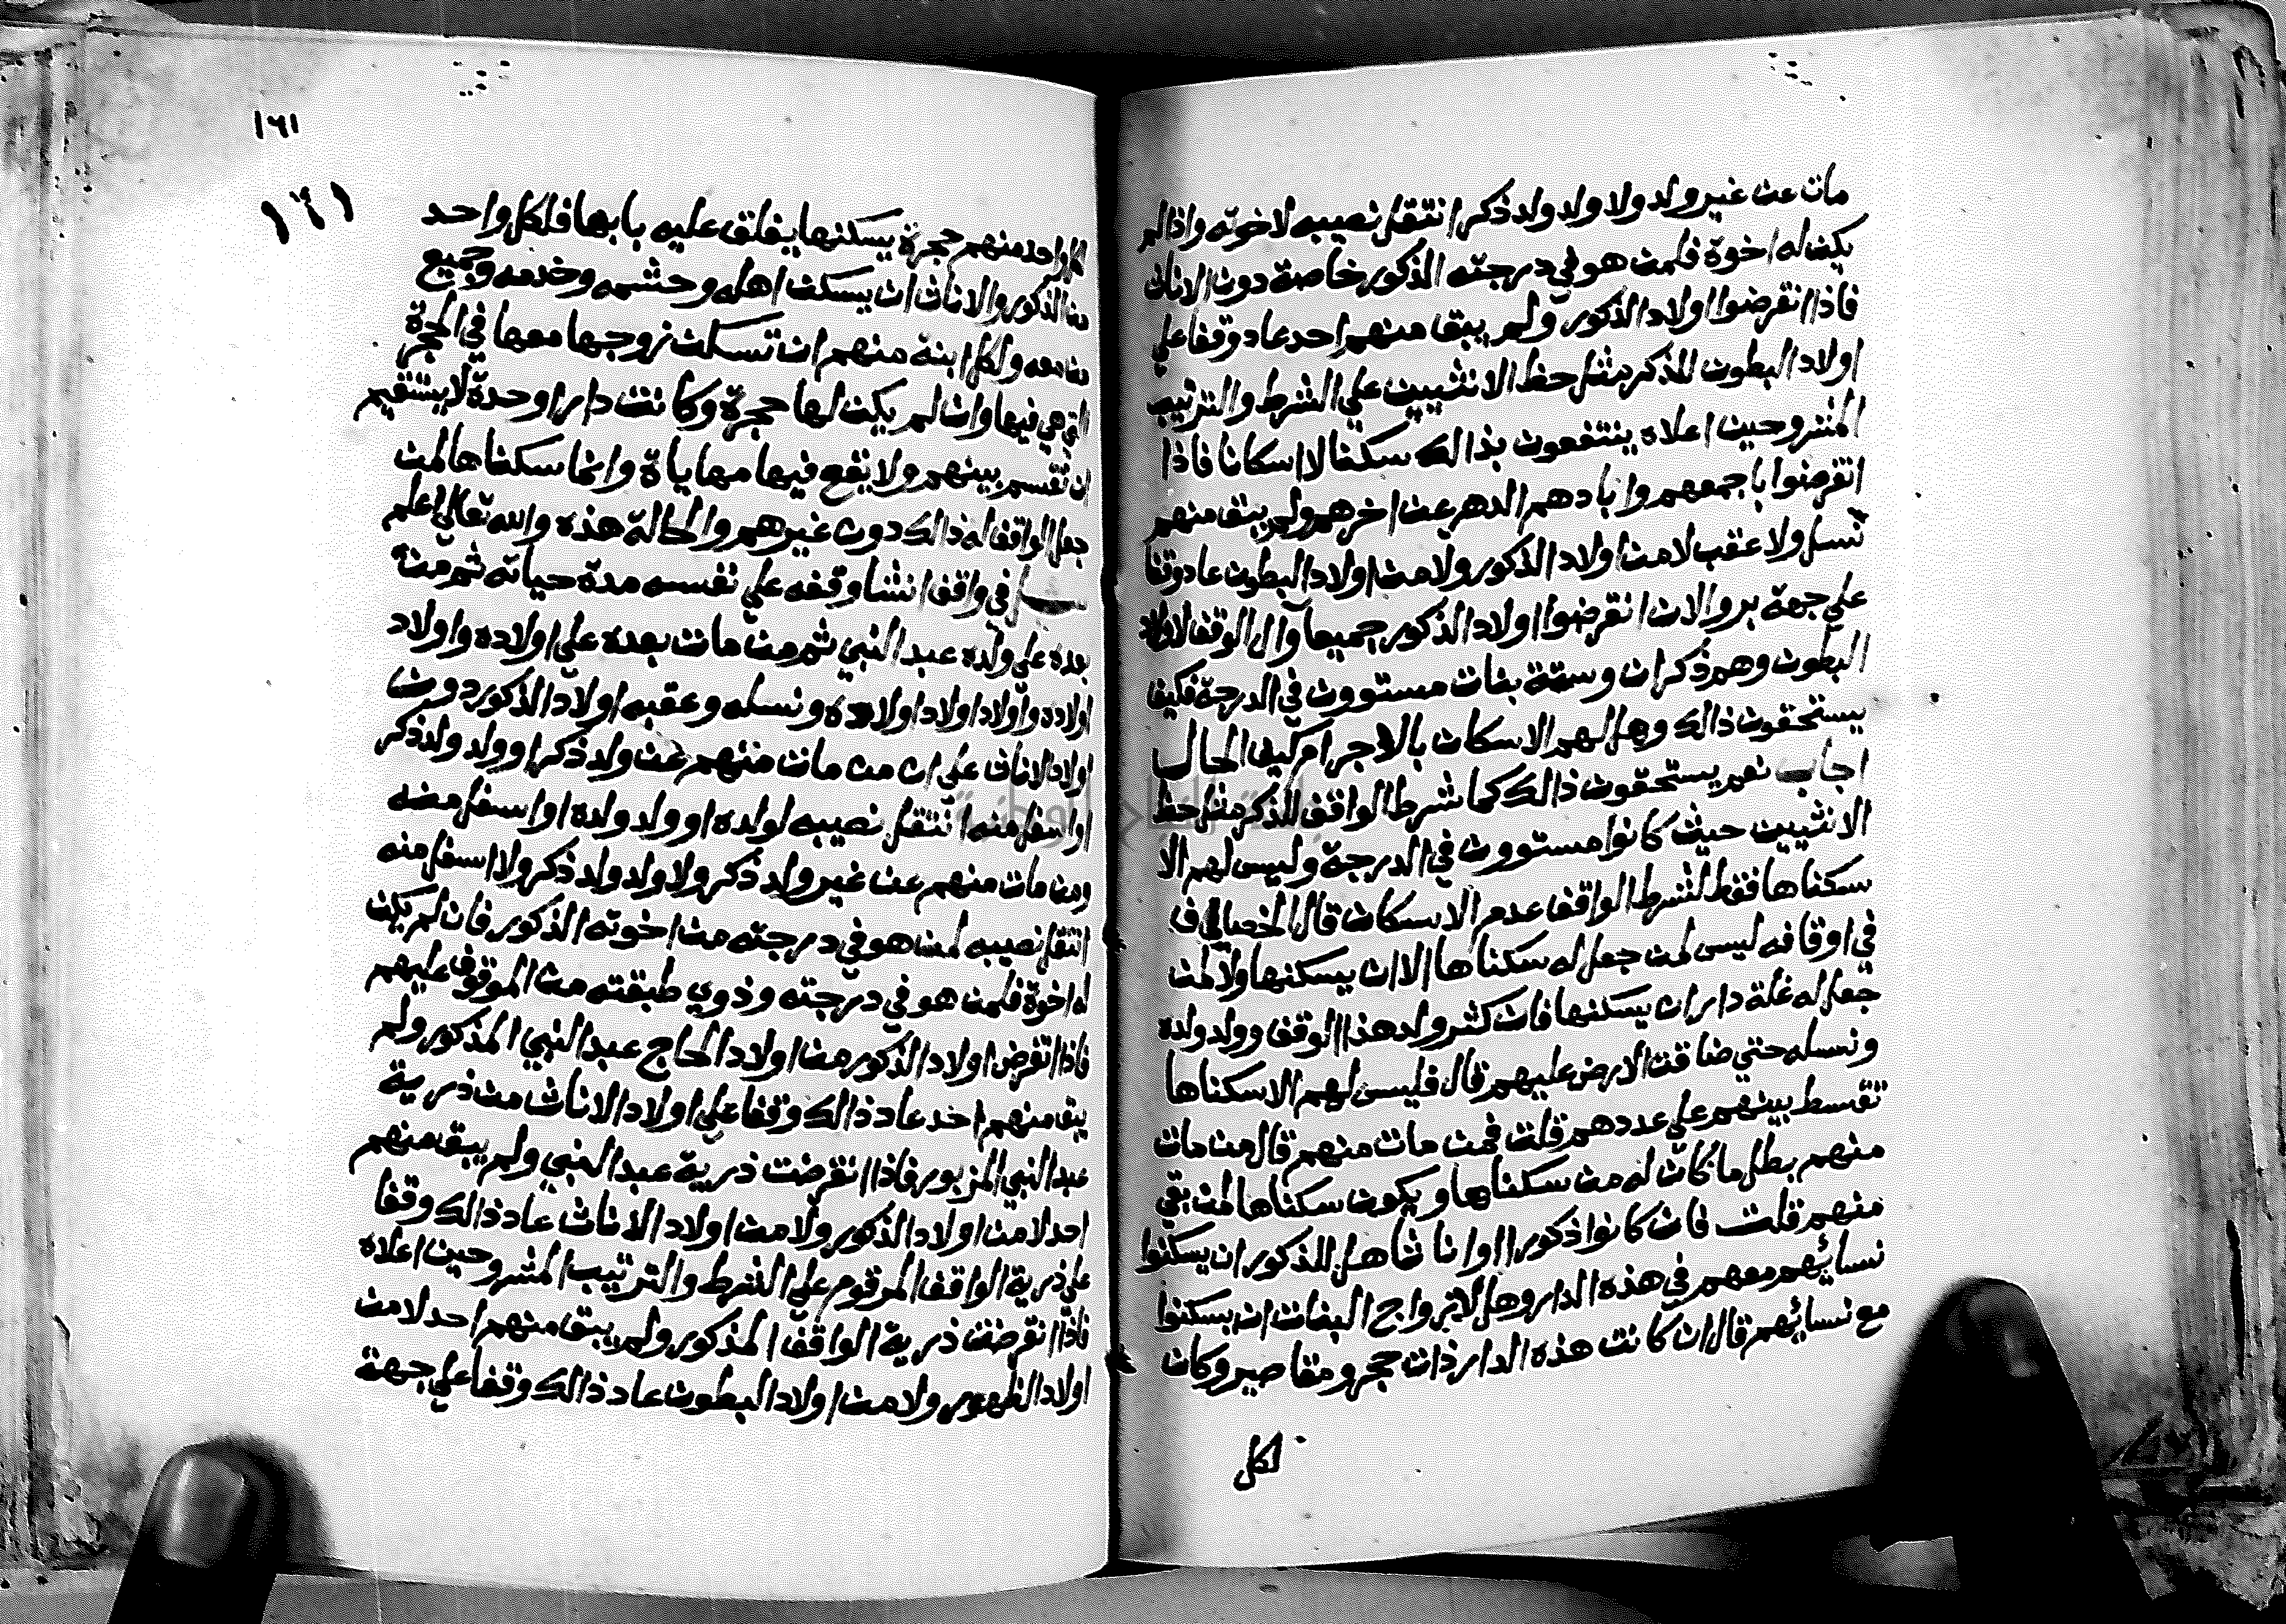 مات عن غير ولد ولا ولد ولد ذكر انتقل نصيبه لاخوته واذا لم
يكن له اخوة فلمن هو في درجته الذكور خاصة دون الاناث
فاذا انقرضوا اولاد الذكور ولم يبق منهم احد عاد وقفا علي
اولاد البطون للذكر مثل حظ الانثيين علي الشرط والترتيب
المشروحين اعلاه ينتفعون بذالك سكنا لا اسكانا فاذا
انقرضوا باجمعهم وابادهم الدهر عن اخرهم ولم يبق منهم
نسل ولا عقب لا من اولاد الذكور ولا من اولاد البطون عاد وقفا
علي جهة بر والان انقرضوا اولاد الذكور جميعا وال الوقف لاولاد
البطون وهم ذكران وستة بنات مستوون في الدرجة فكيف
يستحقون ذالك وهل لهم الاسكان بالاجر ام كيف الحال
اجاب نعم يستحقون ذالك كما شرط الواقف للذكر مثل حظ
الانثيين حيث كانوا مستوون في الدرجة وليس لهم الا
سكناها فقط لشرط الواقف عدم الاسكان قال الخصاف في
في اوقافه ليس لمن جعل له سكناها الا ان يسكنها ولا لمن
جعل له غلة دار ان يسكنها فان كثر ولد هذا الوقف وولد ولده
ونسله حتي ضاقت الارض عليهم قال فليس لهم الا سكناها
تقسط بينهم علي عددهم قلت فمن مات منهم قال من مات
منهم بطل ما كان له من سكناها ويكون سكناها لمن بقي
منهم قلت فان كانوا ذكورا اوانا ثا هل للذكور ان يسكنوا
نسائهم معهم في هذه الدار وهل لازواج البنات ان يسكنوا
مع نسائهم قال ان كانت هذه الدار ذات حجر ومقاصير وكان
لكل
١٦١
١٦١
لكل واحد منهم حجرة يسكنها يغلق عليه بابها فلكل واحد
من الذكور والاناث ان يسكن اهله وحشمه وخدمه وجميع
من معه ولكل ابنة منهم ان تسكن زوجها معها في الحجرة
التي هي فيها وان لم يكن لها حجرة وكانت دارا وحدة لا يستقيم
ان تقسم بينهم ولا يقع فيها مهاياة وانما سكناها لمن
جعل الواقف له ذالك دون غيرهم والحالة هذه والله تعالي اعلم
في واقف انشا وقفه علي نفسه مدة حياته ثم من
بعده علي ولده عبد النبي ثم من مات بعده علي اولاده واولاد
اولاده واولاد اولاد اولاده ونسله وعقبه اولاد الذكور دون
اولاد الاناث علي ان من مات منهم عن ولد ذكر او ولد ولد ذكر
او اسفل منه انتقل نصيبه لولده او ولد ولده او اسفل منه
ومن مات منهم عن غير ولد ذكر ولا ولد ولد ذكر ولا اسفل منه
انتقل نصيبه لمن هو في درجته من اخوته الذكور فان لم يكن
له اخوة فلمن هو في درجته وذوي طبقته من الموقوف عليهم
فاذا انقرض اولاد الذكور من اولاد الحاج عبد النبي المذكور ولم
يبق منهم احد عاد ذالك وقفا علي اولاد الاناث من ذرية
عبد النبي المزبور فاذا انقرضت ذرية عبد النبي ولم يبق منهم
احد لا من اولاد الذكور ولا من اولاد الاناث عاد ذالك وقفا
علي ذرية الواقف المرقوم علي الشرط والترتيب المشروحين اعلاه
فاذا انقرضت ذرية الواقف المذكور ولم يبق منهم احد لا من
اولاد الظهور ولا من اولاد البطون عاد ذالك وقفا علي جهة